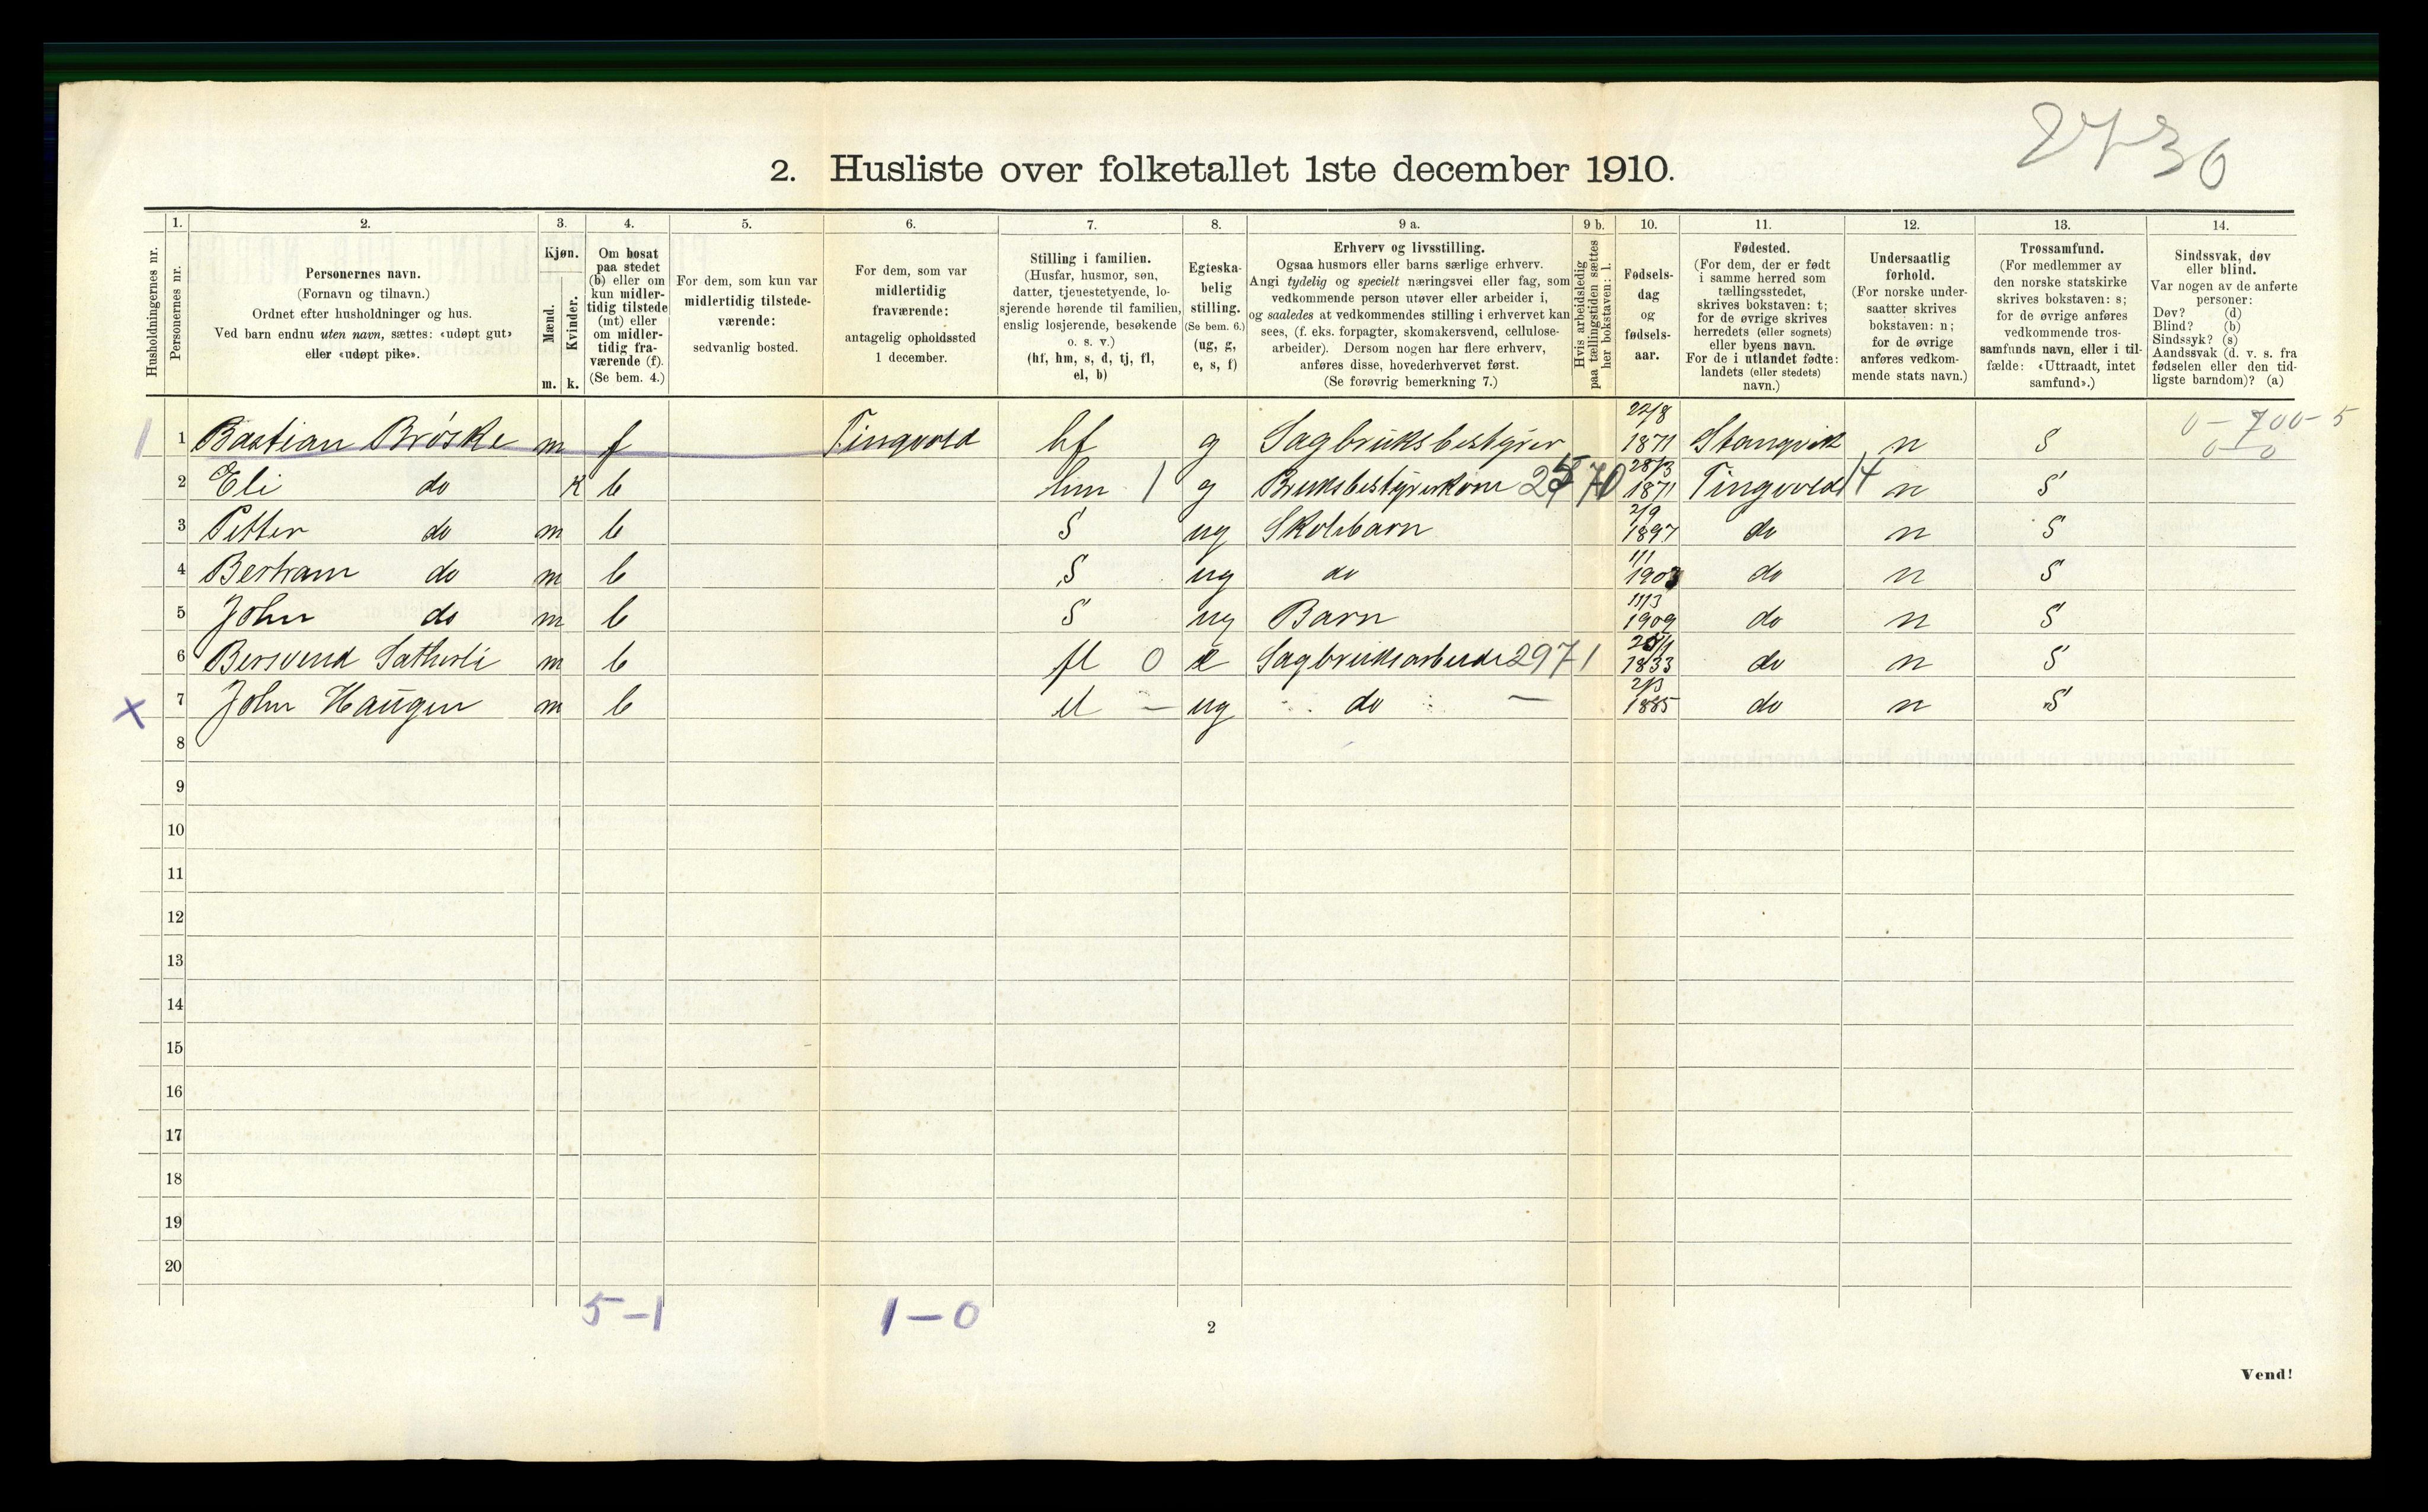 2730
2. Husliste over folketallet 1ste december 1910.
Husholdningernes nr.
1.
Personernes nr.
2.
Personernes navn.
(Fornavn og tilnavn.)
Ordnet efter husholdninger og hus.
Ved barn endnu uten navn, sættes: «udøpt gut»
eller «udøpt pike».
3.
Kjøn.
Mænd.
Kvinder.
m. k.
4.
Om bosat
paa stedet
(b) eller om
kun midler-
tidig tilstede
(mt) eller
om midler-
tidig fra-
værende (f).
(Se bem. 4.)
5.
For dem, som kun var
midlertidig tilstede-
værende:
sedvanlig bosted.
6.
For dem, som var
midlertidig
fraværende:
antagelig opholdssted
1 december.
7.
Stilling i familien.
(Husfar, husmor, søn,
datter, tjenestetyende, lo-
sjerende hørende til familien,
enslig losjerende, besøkende
o. s. v.)
(hf, hm, s, d, tj, fl,
el, b)
8.
Egteska-
belig
stilling.
(Se bem. 6.)
(ug, g,
e, s, f)
9 a.
Erhverv og livsstilling.
Ogsaa husmors eller barns særlige erhverv.
Angi tydelig og specielt næringsvei eller fag, som
vedkommende person utøver eller arbeider i,
og saaledes at vedkommendes stilling i erhvervet kan
sees, (f. eks. forpagter, skomakersvend, cellulose-
arbeider). Dersom nogen har flere erhverv,
anføres disse, hovederhvervet først.
(Se forøvrig bemerkning 7.)
9 b.
Hvis arbeidsledig
paa tællingstiden sættes
her bokstaven: l.
10.
Fødsels-
dag
og
fødsels-
aar.
11.
Fødested.
(For dem, der er født
i samme herred som
tællingsstedet,
skrives bokstaven: t;
for de øvrige skrives
herredets (eller sognets)
eller byens navn.
For de i utlandet fødte:
landets (eller stedets)
navn.)
12.
Undersaatlig
forhold.
(For norske under-
saatter skrives
bokstaven: n;
for de øvrige
anføres vedkom-
mende stats navn.)
13.
Trossamfund.
(For medlemmer av
den norske statskirke
skrives bokstaven: s;
for de øvrige anføres
vedkommende tros-
samfunds navn, eller i til-
fælde: «Uttraadt, intet
samfund».)
14.
Sindssvak, døv
eller blind.
Var nogen av de anførte
personer:
Døv? (d)
Blind? (b)
Sindssyk? (s)
Aandssvak (d. v. s. fra
fødselen eller den tid-
ligste barndom)? (a)
1 1 Bastian Brøske m f Tingvold hf g Sagbruksbestyrer 22/8 1871 Stangvik n S 0-700-5 0-0
2 Eli do k b hm 1 g Bruksbestyrerkone 70 28/3 1871 Tingvold 14 n S
3 Petter do m b S ug Skolebarn 2/9 1897 do n S
4 Bertram do m b S ug do 1/1 1903 do n S
5 John do m b S ug Barn 11/3 1909 do n S
6 Bersvend Sætherli m b fl 0 e Sagbruksarbeider 2971 1833 do n S
x 7 John Haugen m b el - ug do - 2/3 1885 do n S
8
9
10
11
12
13
14
15
16
17
18
19
20
5-1 1-0
2
Vend!